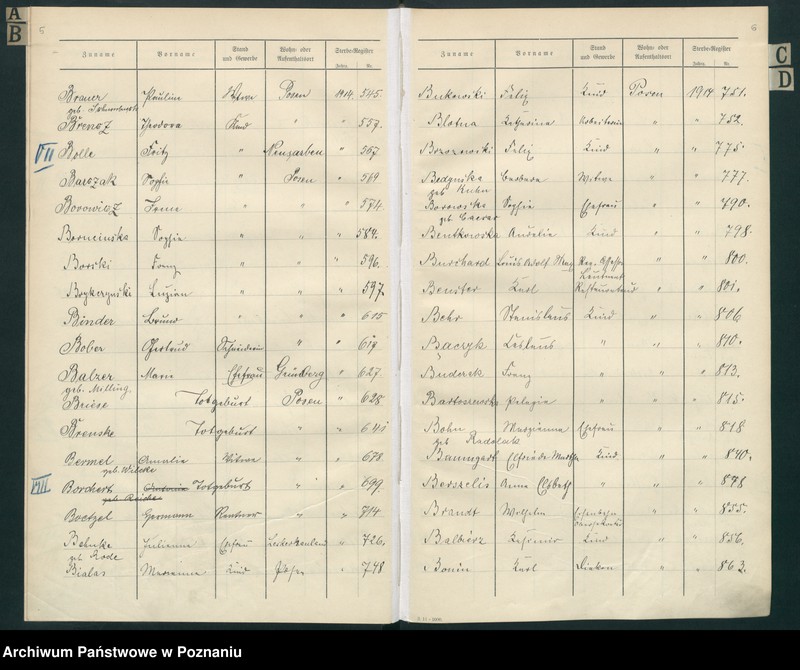 A
B
5
Zuname Vorname Stand und Gewerbe Wohn- oder Aufenthaltsort Sterbe-Register
Jahrg. Nr.
Brauer Pauline Wtwe Posen 1914 545.
geb.
Brenoz Theodora Kind " " 557.
VII Bolle Fritz " Neugarben " 567
Barczak Sophie " Posen " 569
Borowicz Irene " " " 574.
Borncinska Sophie " " " 584.
Borski Franz " " " 596.
Brykczynski Luzian " " " 597.
Binder Bruno " " " 615
Bober Gertrud Schneiderin " " 619
Balzer Marie Ehefrau Grünberg " 627.
geb. Milling
Briese Totgeburt Posen " 628
Brenske Totgeburt " " 641
Bermel Amalie Witwe " " 678
geb. Wilcke
VIII Borchert Totgeburt " " 699.
geb. Reiche
Boetzel Hermann Rentner " " 714
Behnke Julianne Ehefrau " 726.
geb. Rode
Bialas Marianna Kind " 748
6
C
D
Zuname Vorname Stand und Gewerbe Wohn- oder Aufenthaltsort Sterbe-Register
Jahrg. Nr.
Bukowski Felix Kind Posen 1914 751.
Blotna Katharina Arbeiterin " " 752.
Brzozowski Felix Kind " " 775.
Bedynska Barbara Witwe " " 777.
geb. Kuhn
Borowska Sophie Ehefrau " " 790.
geb.
Bentkowska Aurelie Kind " " 798.
Burchard Louis Adolf Max " " 800.
Leutnant
Beuster Karl Restaurateur " " 801.
Behr Stanislaus Kind " " 806
Baczyk Ladislaus " " " 810.
Buderek Franz " " " 813.
Bartoszewska Pelagia " " " 815.
Bohn Marianna Ehefrau " " 818
geb. Radolak
Baumgart Elfriede Martha Kind " " 840.
Berszelis Anna Elsbeth " " " 848
Brandt Wilhelm Eisenbahn " " 855.
Balbierz Kasimir Kind " " 856.
Bonin Karl Diakon " " 863.
Archiwum Państwowe w Poznaniu